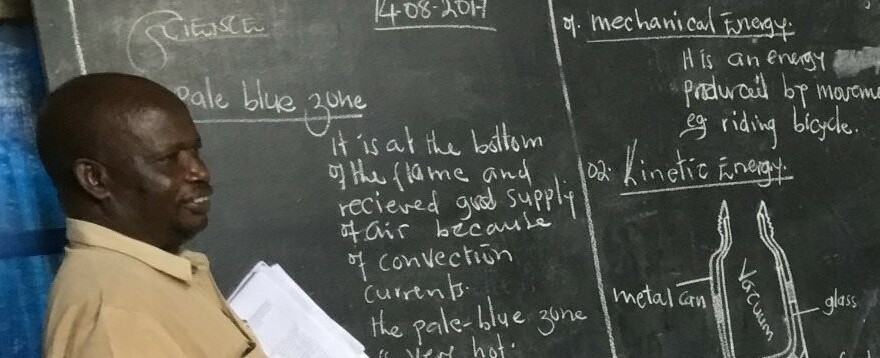 SCIENCE
14-08-2017
Pale blue zone
It is at the bottom
of the flame and
recieved good supply
of air because
of convection
currents.
the pale-blue zone
is very hot.
of. mechanical Energy.
It is an energy
Produced by moveme
eg riding bicycle.
02. Kinetic Energy.
metal can
Vacuum
glass